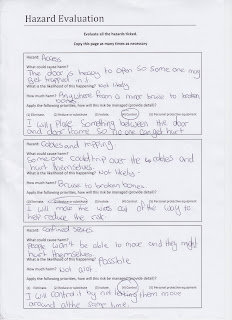 Hazard Evaluation
Evaluate all the hazards listed.
Copy this page as many times as necessary
Hazard: Access
What could cause harm?
The door is heavy to open so someone may
get trapped in it
What is the likelihood of this happening? Not likely
How much harm? Anywhere from a minor bruise to broken
bones
Apply the following priorities, how will this risk be managed (provide detail)?
(1) Eliminate (2) Reduce or substitute (3) Isolate (4) Control (5) Personal protective equipment
I will place something between the door
and door frame so no one can get hurt.
Hazard: Cables and tripping
What could cause harm?
Someone could trip over the cables and
hurt themselves.
What is the likelihood of this happening? Not likely
How much harm? Bruise to broken bones
Apply the following priorities, how will this risk be managed (provide detail)?
(1) Eliminate (2) Reduce or substitute (3) Isolate (4) Control (5) Personal protective equipment
I will move the wires out of the way to
help reduce the risk
Hazard: Confined spaces
What could cause harm?
People won't be able to move and they might
hurt themselves.
What is the likelihood of this happening? Possible
How much harm?
Not alot.
Apply the following priorities, how will this risk be managed (provide detail)?
(1) Eliminate (2) Reduce or substitute (3) Isolate (4) Control (5) Personal protective equipment
I will control it by not letting them move
around at the same time.